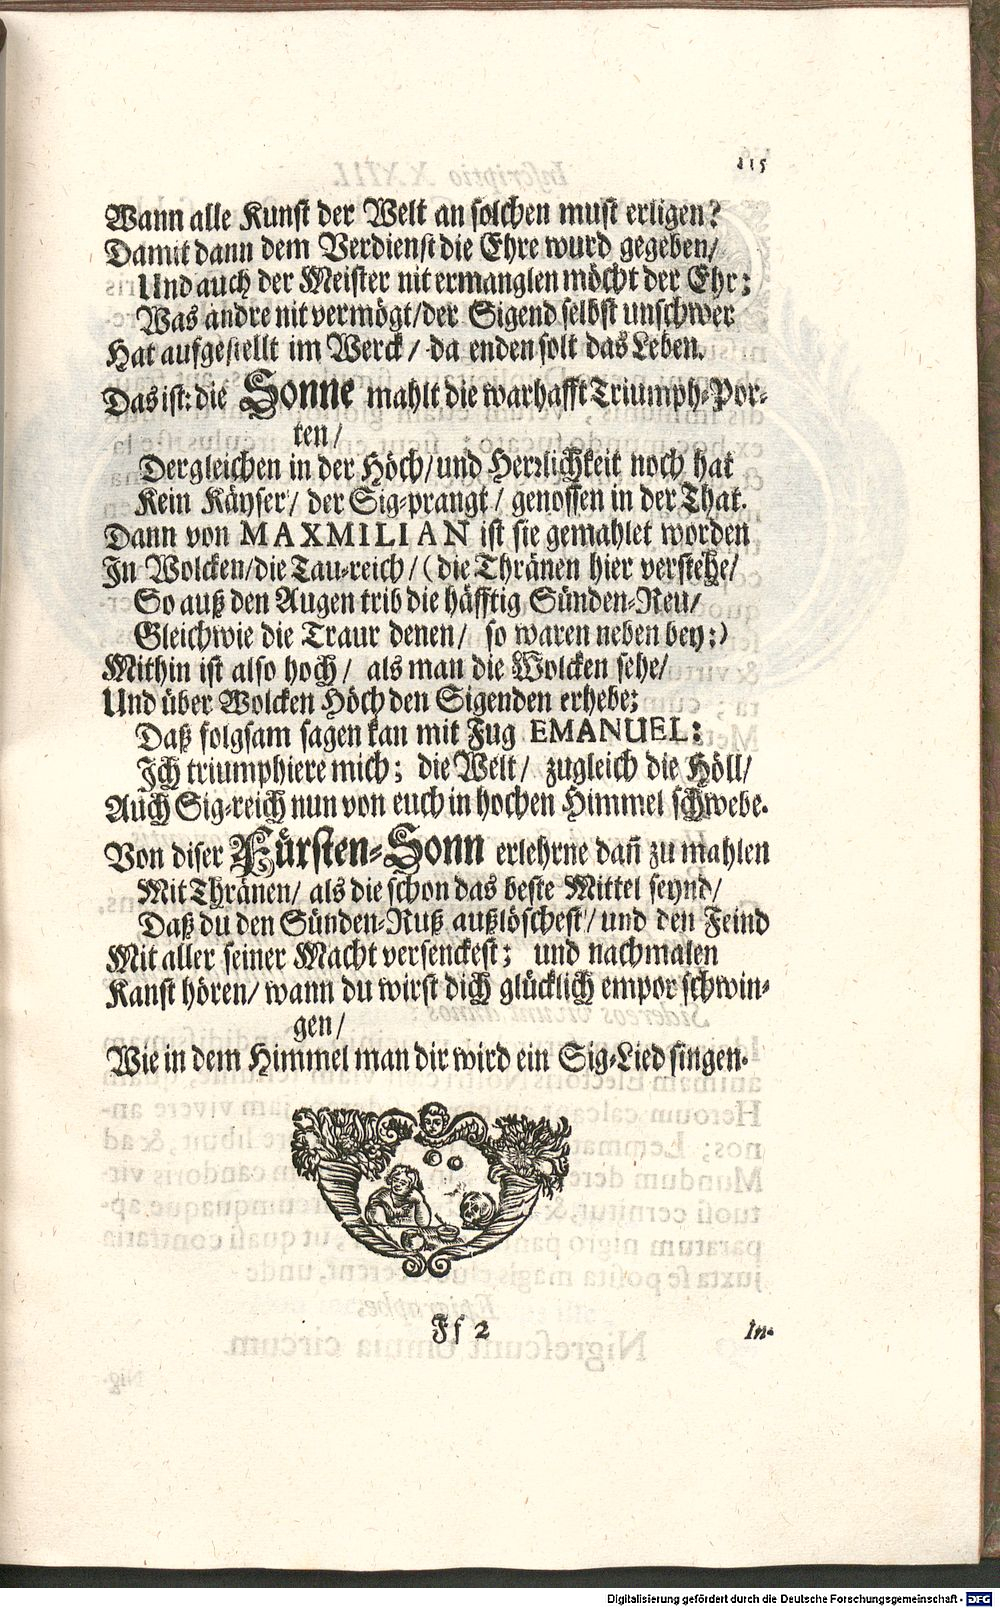 115
Wann alle Kunst der Welt an solchen must erligen?
Damit dann dem Verdienst die Ehre wurd gegeben/
Und auch der Meister nit ermanglen möcht der Ehr;
Was andre nit vermögt/ der Sigend selbst unschwer
Hat aufgestellt im Werck/ da enden solt das Leben.
Das ist: die Sonne mahlt die warhafft Triumph-Por-
ten/
Dergleichen in der Höch/ und Herrlichkeit noch hat
Kein Käyser/ der Sig-prangt/ genossen in der That.
Dann von MAXMILIAN ist sie gemahlet worden
In Wolcken/ die Tau-reich/ (die Thränen hier verstehe/
So auß den Augen trib die häfftig Sünden-Reu/
Gleichwie die Traur denen/ so waren neben bey:)
Mithin ist also hoch/ als man die Wolcken sehe/
Und über Wolcken Höch den Sigenden erhebe;
Daß folgsam sagen kan mit Fug EMANUEL:
Ich triumphiere mich; die Welt/ zugleich die Höll/
Auch Sig-reich nun von euch in hochen Himmel schwebe.
Von diser Fürsten-Sonn erlehrne dañ zu mahlen
Mit Thränen/ als die schon das beste Mittel seynd/
Daß du den Sünden-Ruß außlöschest/ und den Feind
Mit aller seiner Macht versenckest; und nachmalen
Kanst hören/ wann du wirst dich glücklich empor schwin-
gen/
Wie in dem Himmel man dir wird ein Sig-Lied singen.
Ff 2
In-
Digitalisierung gefördert durch die Deutsche Forschungsgemeinschaft - DFG